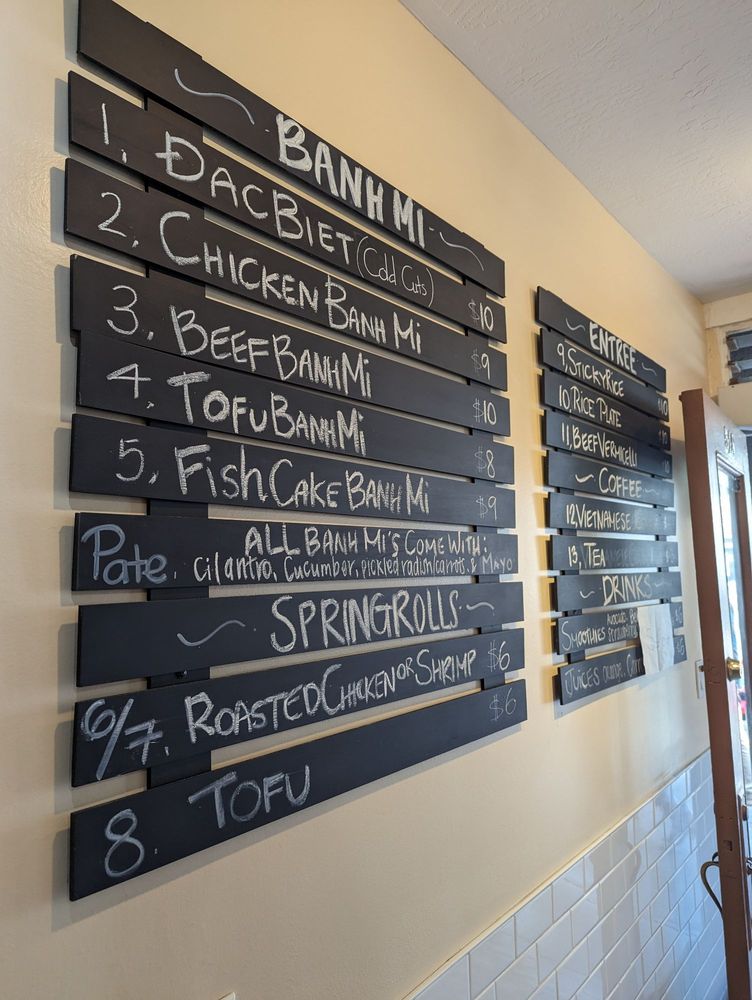 ~ BANH MI ~
1. ĐACBIET (Cold Cuts) $10
2. CHICKEN BANH MI $9
3. BEEF BANH MI $10
4. TOFU BANH MI $8
5. FISH CAKE BANH MI $9
ALL BANH MI'S COME WITH:
Pate, Cilantro, Cucumber, pickled radish/carrots, & MAYO
~ SPRING ROLLS ~
6/7. ROASTED CHICKEN OR SHRIMP $6
8. TOFU $6
~ ENTREE ~
9. STICKY RICE
10. RICE PLATE
11. BEEF VERMICELLI
~ COFFEE ~
12. VIETNAMESE
13. TEA
~ DRINKS ~
SMOOTHIES
JUICES